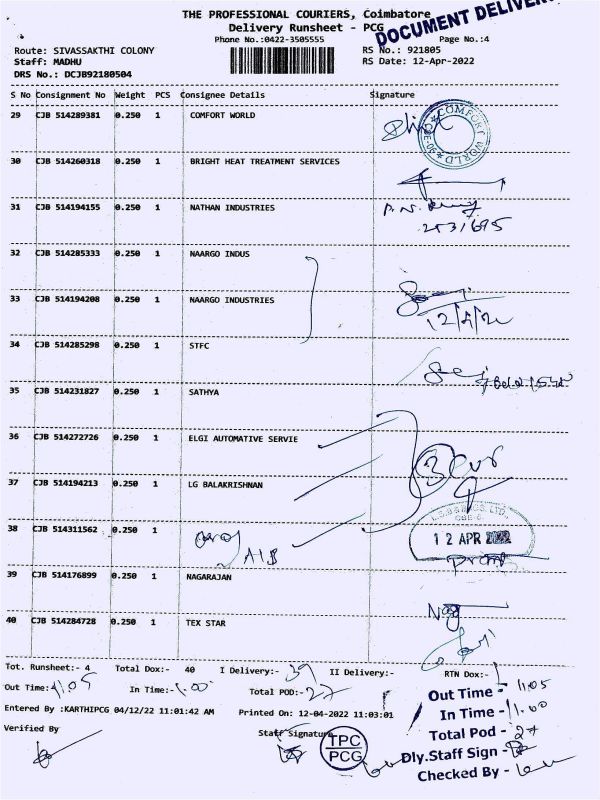 THE PROFESSIONAL COURIERS, Coimbatore
DOCUMENT DELIVERY
Delivery Runsheet - PCG
Phone No.:0422-3505555
Page No.:4
Route: SIVASSAKTHI COLONY
RS No.: 921805
Staff: MADHU
RS Date: 12-Apr-2022
DRS No.: DCJB92180504
S No Consignment No Weight PCS Consignee Details Signature
29 CJB 514289381 0.250 1 COMFORT WORLD
COMFORT WORLD
30 CJB 514260318 0.250 1 BRIGHT HEAT TREATMENT SERVICES
31 CJB 514194155 0.250 1 NATHAN INDUSTRIES
2531695
32 CJB 514285333 0.250 1 NAARGO INDUS
33 CJB 514194208 0.250 1 NAARGO INDUSTRIES
34 CJB 514285298 0.250 1 STFC
35 CJB 514231827 0.250 1 SATHYA
36 CJB 514272726 0.250 1 ELGI AUTOMATIVE SERVIE
37 CJB 514194213 0.250 1 LG BALAKRISHNAN
3
38 CJB 514311562 0.250 1
12 APR 2022
39 CJB 514176899 0.250 1 NAGARAJAN
40 CJB 514284728 0.250 1 TEX STAR
Tot. Runsheet:- 4 Total Dox:- 40 I Delivery:- 39 II Delivery:- RTN Dox:-
Out Time:- 11.05 In Time:- 1.00 Total POD:- 27
Entered By :KARTHIPCG 04/12/22 11:01:42 AM Printed On: 12-04-2022 11:03:01
Verified By Staff Signature
TPC
PCG
Out Time - 11.05
In Time - 1.00
Total Pod - 27
Dly.Staff Sign -
Checked By -